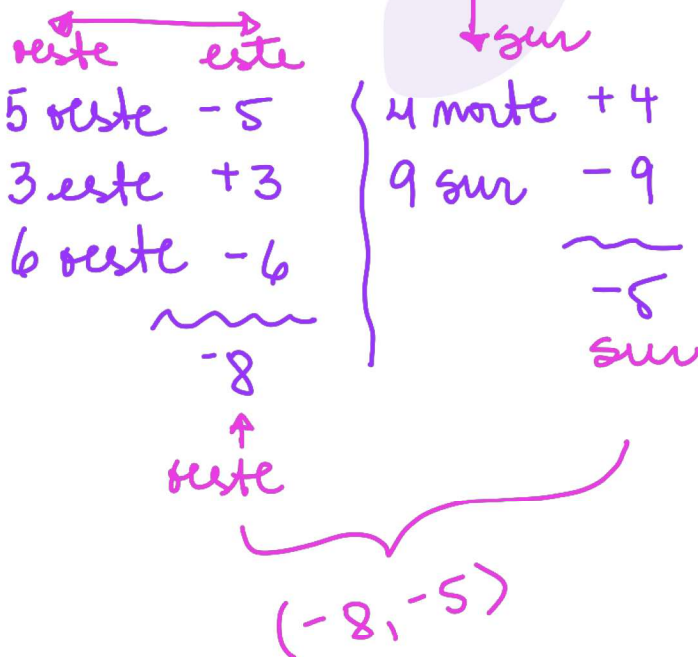 oeste este
sur
5 oeste -5
3 este +3
6 oeste -6
-8
oeste
4 norte +4
9 sur -9
-5
sur
(-8, -5)